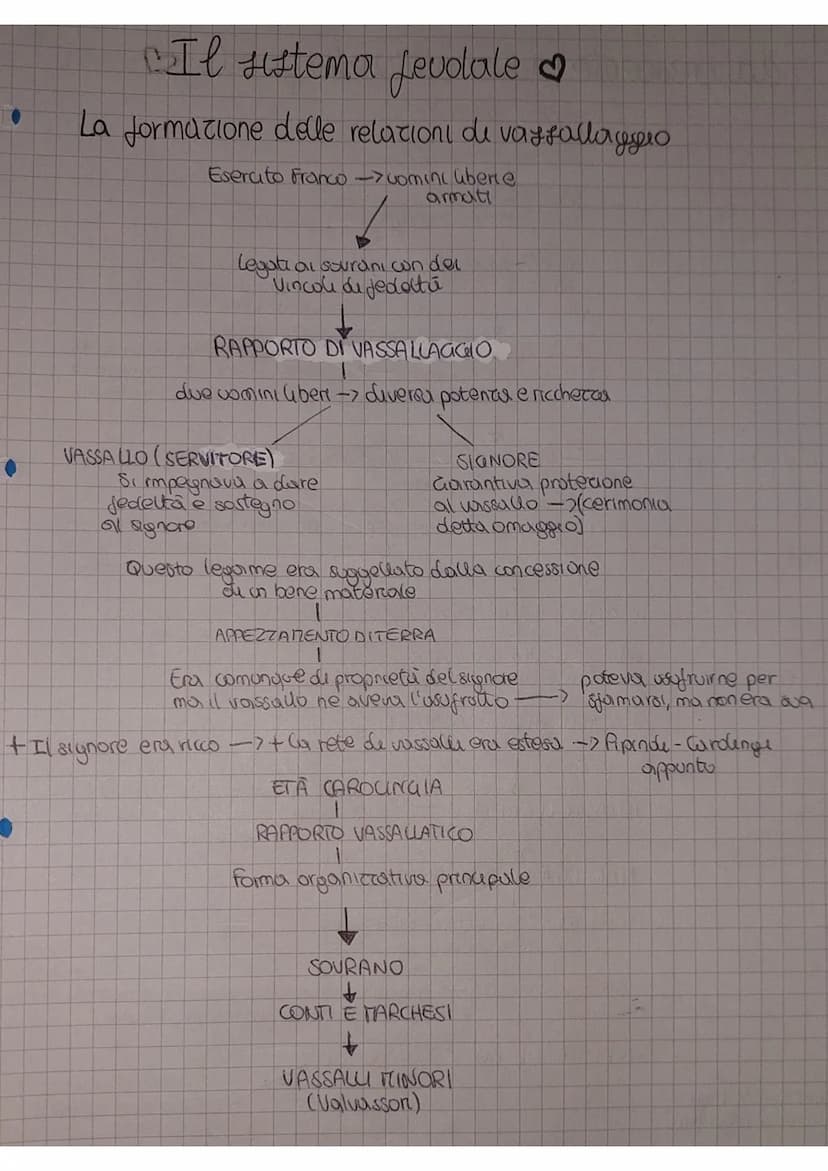 Il sistema feudale ♡
La formazione delle relazioni di vassallaggio
Esercito Franco → uomini liberi e
armati
Legati ai sovrani con dei
vincoli di fedeltà
RAPPORTO DI VASSALLAGGIO
due uomini liberi → diversa potenza e ricchezza
VASSALLO (SERVITORE)
Si impegnava a dare
fedeltà e sostegno
al signore
SIGNORE
Garantiva protezione
al vassallo → (cerimonia
detta omaggio)
Questo legame era suggellato dalla concessione
di un bene materiale
APPEZZAMENTO DI TERRA
Era comunque di proprietà del signore
ma il vassallo ne aveva l'usufrutto →
poteva usufruirne per
sfamarsi, ma non era sua
+ Il signore era ricco → + La rete di vassalli era estesa → Pipinidi - Carolingi
appunto
ETÀ CAROLINGIA
RAPPORTO VASSALLATICO
Forma organizzativa principale
SOVRANO
CONTI E MARCHESI
VASSALLI MINORI
(Valvassori)